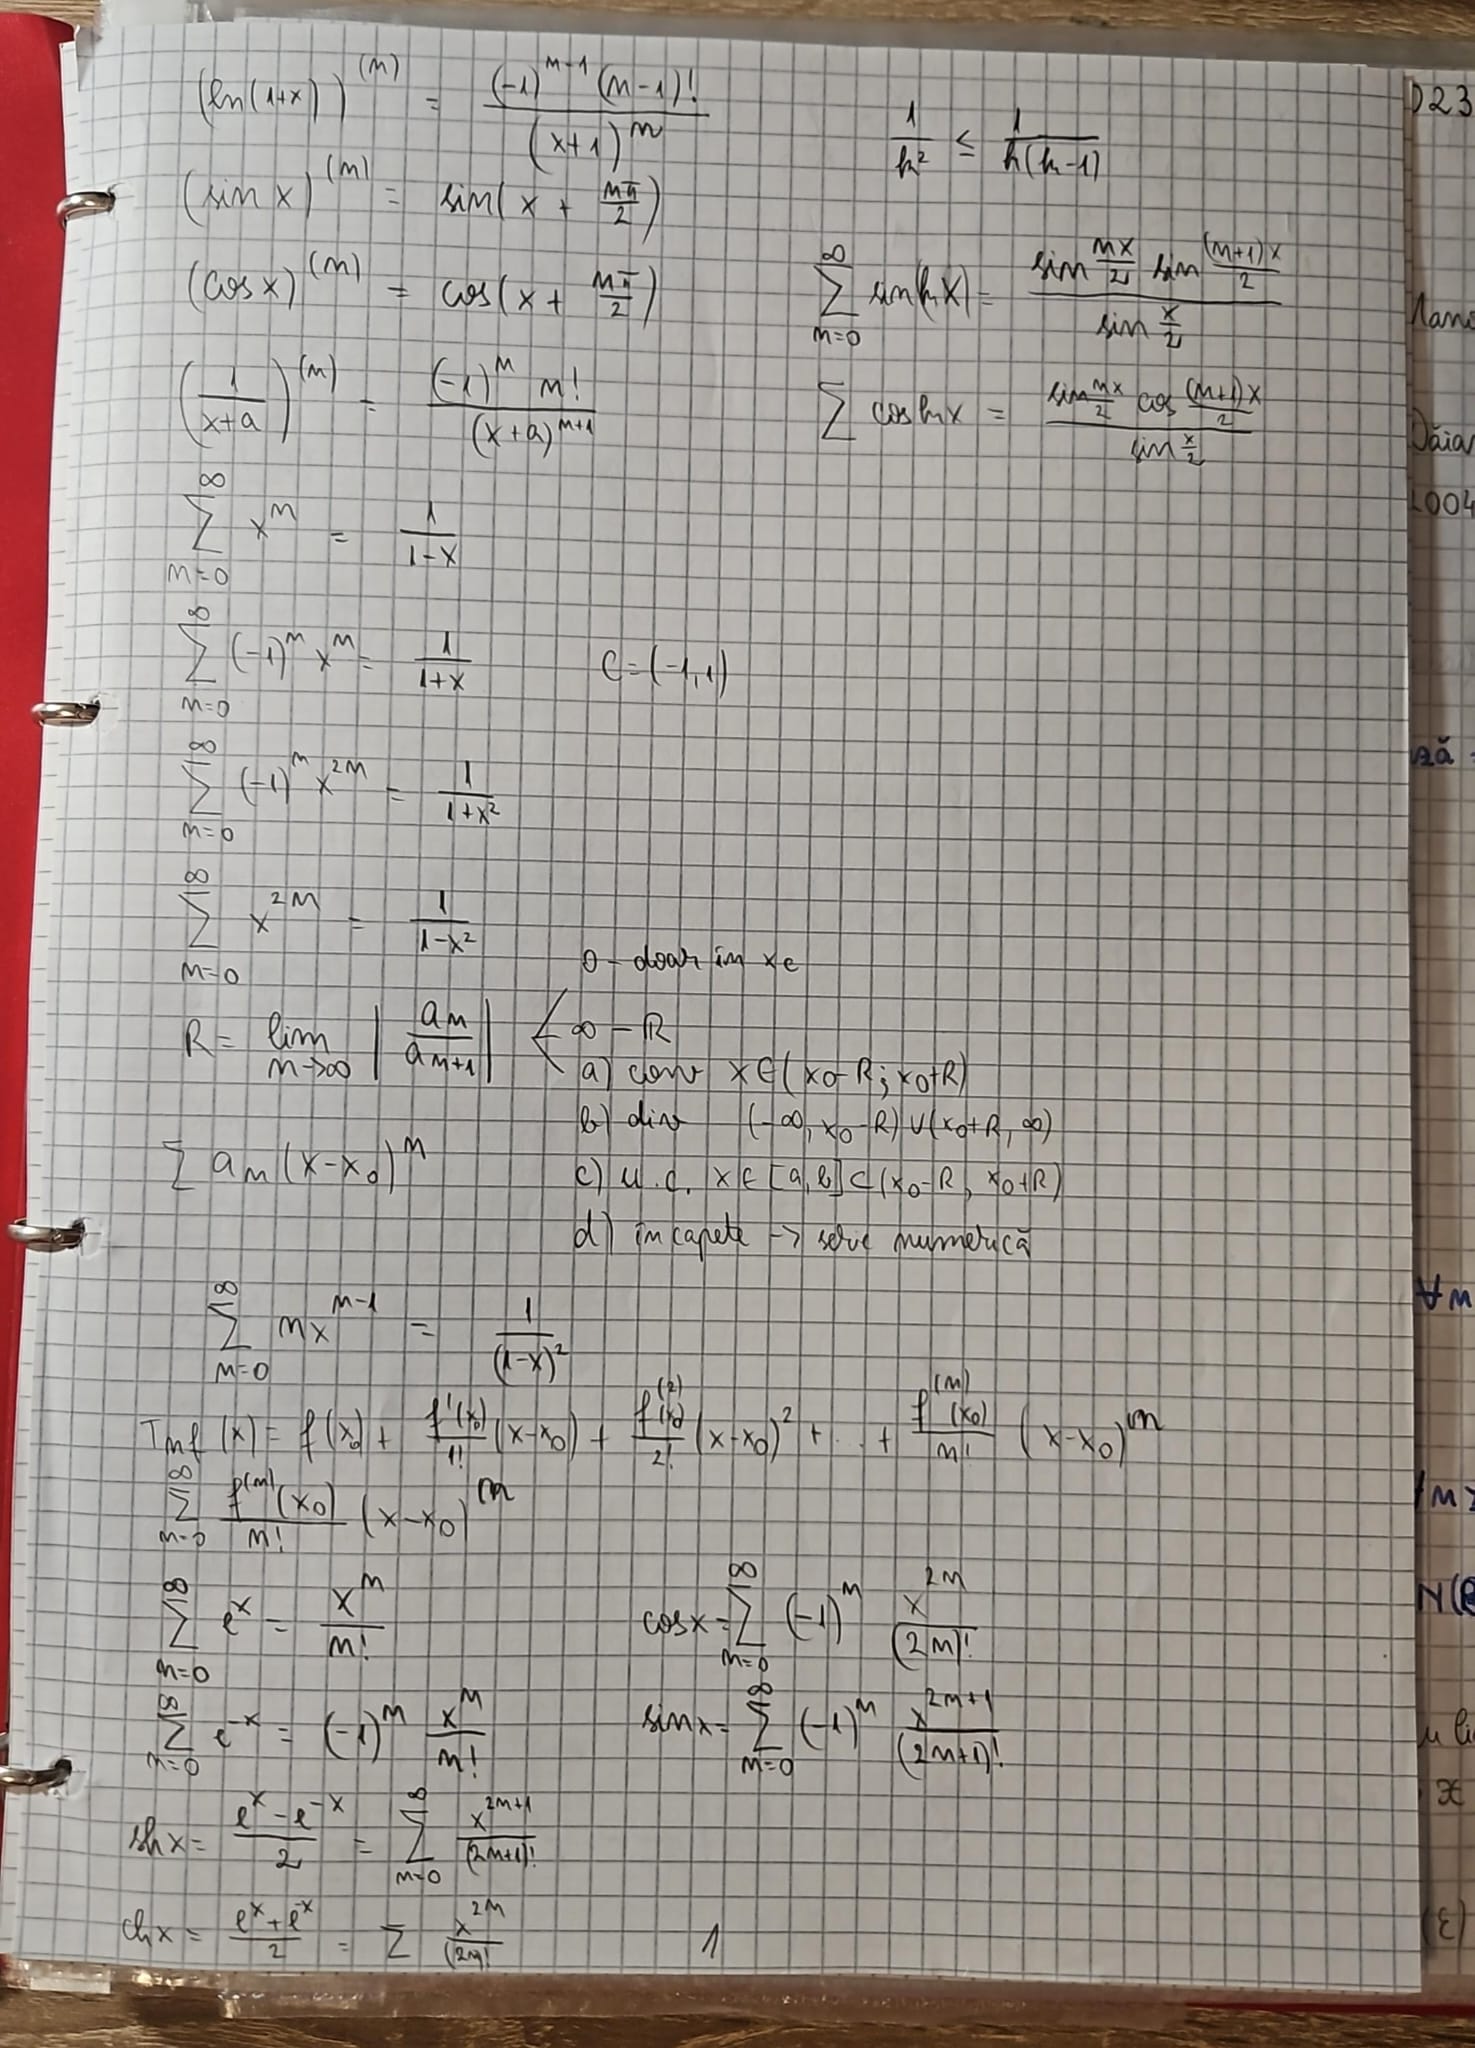 (ln(1+x))^(n) = (-1)^(n-1) (n-1)! / (x+1)^n
1/k² ≤ 1/(k(k-1))
(sin x)^(n) = sin(x + nπ/2)
(cos x)^(n) = cos(x + nπ/2)
∑_{n=0}^{∞} sin(kx) = sin(nx/2) sin((n+1)x/2) / sin(x/2)
(1/(x+a))^(n) = (-1)^n n! / (x+a)^(n+1)
∑ cos kx = sin(nx/2) cos((n+1)x/2) / sin(x/2)
∑_{n=0}^{∞} x^n = 1/(1-x)
∑_{n=0}^{∞} (-1)^n x^n = 1/(1+x) C=(-1,1)
∑_{n=0}^{∞} (-1)^n x^(2n) = 1/(1+x²)
∑_{n=0}^{∞} x^(2n) = 1/(1-x²)
0 - doar în xc
R = lim_{n→∞} |a_n / a_{n+1}| < ∞ - ℝ
a) conv x∈(x₀-R; x₀+R)
b) div (-∞, x₀-R)∪(x₀+R, ∞)
∑ a_n (x-x₀)^n
c) u.c. x∈[a,b]⊂(x₀-R, x₀+R)
d) în capete → serie numerică
∑_{n=0}^{∞} nx^(n-1) = 1/(1-x)²
T_n f(x) = f(x₀) + f'(x₀)/1! (x-x₀) + f^(2)(x₀)/2! (x-x₀)² + ... + f^(n)(x₀)/n! (x-x₀)^n
∑_{n=0}^{∞} f^(n)(x₀)/n! (x-x₀)^n
∑_{n=0}^{∞} e^x = x^n/n!
cosx = ∑_{n=0}^{∞} (-1)^n x^(2n)/(2n)!
∑_{n=0}^{∞} e^(-x) = (-1)^n x^n/n!
sinx = ∑_{n=0}^{∞} (-1)^n x^(2n+1)/(2n+1)!
shx = (e^x - e^(-x))/2 = ∑_{n=0}^{∞} x^(2n+1)/(2n+1)!
chx = (e^x + e^(-x))/2 = ∑ x^(2n)/(2n)!
1